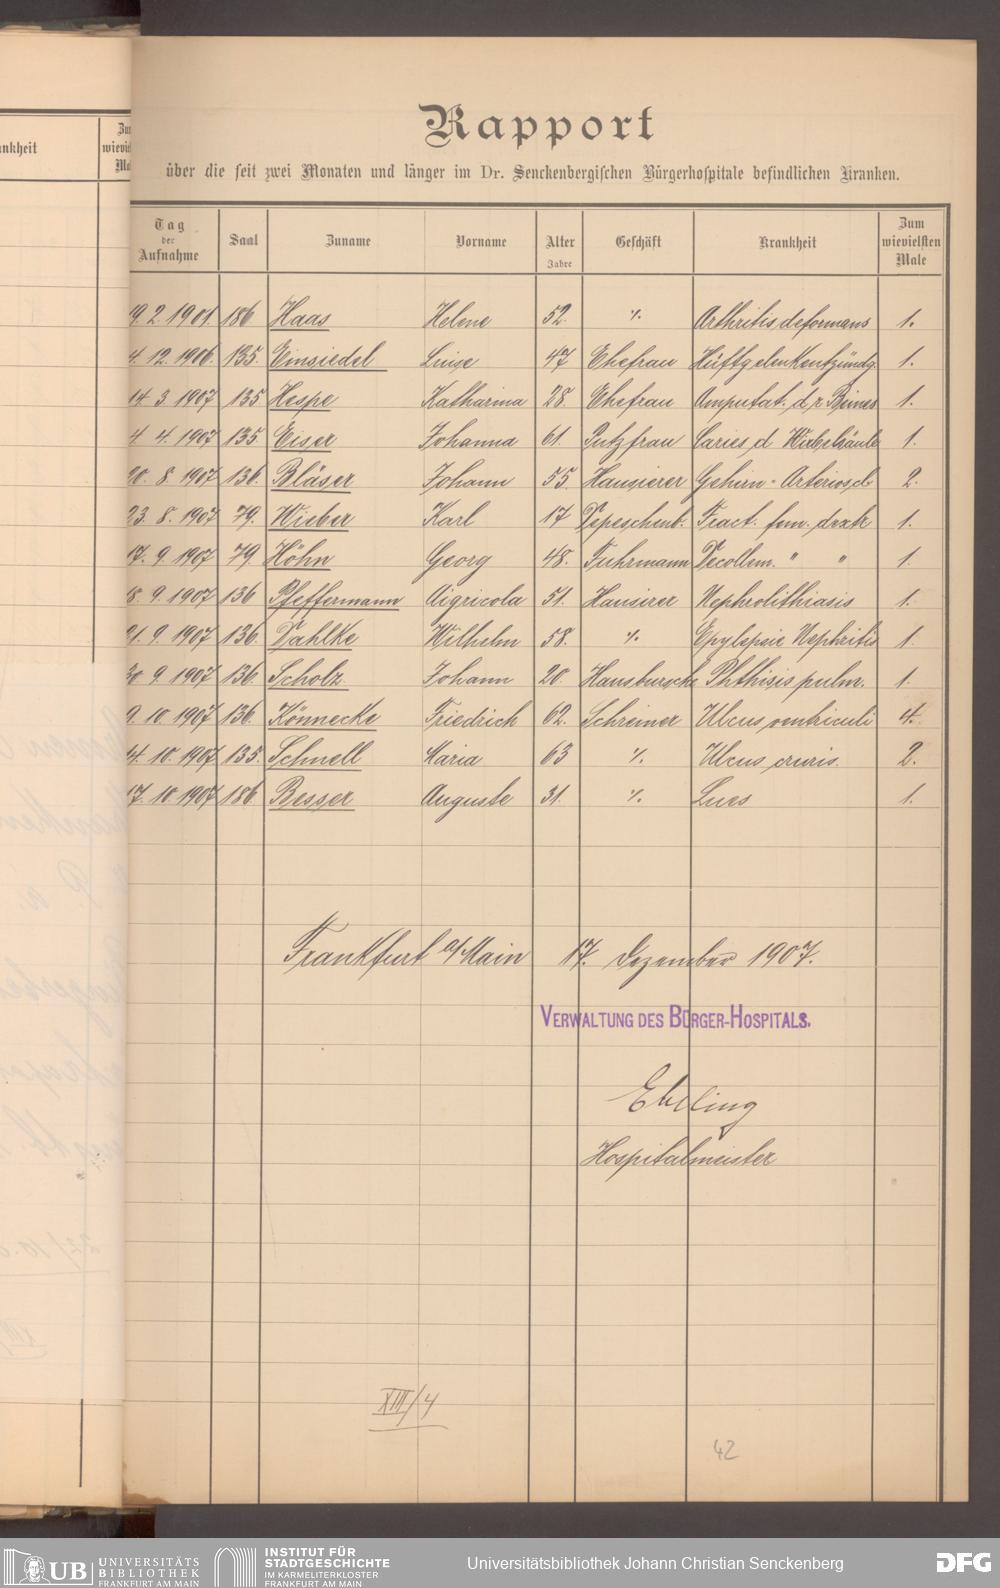 Krankheit
Rapport
über die seit zwei Monaten und länger im Dr. Senckenbergischen Bürgerhospitale befindlichen Kranken.
Tag der Aufnahme Saal Zuname Vorname Alter Jahre Geschäft Krankheit Zum wievielsten Male
19. 2. 1901 186 Haas Helene 52. ·/. Arthritis deformans 1.
4. 12. 1906. 135. Einsiedel Luise 47 Ehefrau Hüftgelenkentzündg. 1.
14. 3. 1907 135 Hespe Katharina 28. Ehefrau Amputat. d. r. Beines 1.
4 4. 1907 135. Eiser Johanna 61. Putzfrau Caries d Wirbelsäule 1.
20. 8. 1907 136. Bläser Johann 55. Hausierer Gehirn-Arterioscl. 2.
23. 8. 1907 79. Wieber Karl 17 Depeschenb. Fract. fem. dextr 1.
17. 9. 1907 79. Höhn Georg 48. Fuhrmann Decollem. " " 1.
18. 9. 1907 136 Pfeffermann Aigricola 51. Hausirer Nephrolithiasis 1.
21. 9. 1907 136. Dahlke Wilhelm 58. ·/. Epylepsie Nephritis 1.
30 9. 1907 136. Scholz Johann 20. Hausbursche Phthisis pulm. 1.
9. 10. 1907 136. Könnecke Friedrich 62. Schreiner Ulcus ventriculi 4.
14. 10. 1907 135. Schnell Maria 63 ·/. Ulcus cruris. 2.
17. 10. 1907 186. Besser Auguste 31. ·/. Lues 1.
Frankfurt a/Main 17. Dezember 1907.
VERWALTUNG DES BÜRGER-HOSPITALS.
Ebeling
Hospitalmeister
XIII/4
42
UB UNIVERSITÄTS BIBLIOTHEK FRANKFURT AM MAIN
INSTITUT FÜR STADTGESCHICHTE IM KARMELITERKLOSTER FRANKFURT AM MAIN
Universitätsbibliothek Johann Christian Senckenberg
DFG